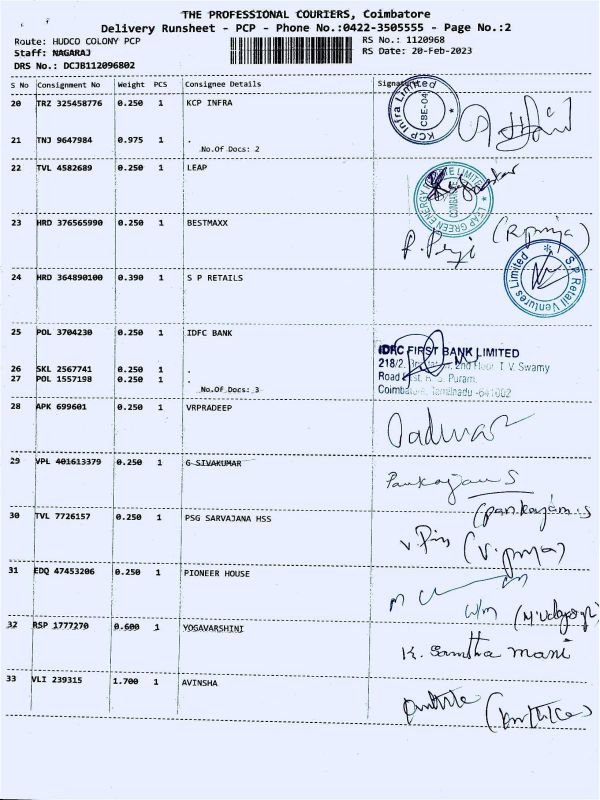 THE PROFESSIONAL COURIERS, Coimbatore
Delivery Runsheet - PCP - Phone No.:0422-3505555 - Page No.:2
Route: HUDCO COLONY PCP RS No.: 1120968
Staff: NAGARAJ RS Date: 20-Feb-2023
DRS No.: DCJB112096802
S No Consignment No Weight PCS Consignee Details Signature
20 TRZ 325458776 0.250 1 KCP INFRA
KCP Infra Limited CBE-04
21 TNJ 9647984 0.975 1 .
No.Of Docs: 2
22 TVL 4582689 0.250 1 LEAP
LEAP GREEN ENERGY LIMITED
23 HRD 376565990 0.250 1 BESTMAXX
24 HRD 364890100 0.390 1 S P RETAILS
S.P. Retail Ventures Limited
25 POL 3704230 0.250 1 IDFC BANK
IDFC FIRST BANK LIMITED
218/2, 2nd Floor, T. V. Swamy
Road East, R. S. Puram,
Coimbatore, Tamilnadu -641002
26 SKL 2567741 0.250 1 .
27 POL 1557198 0.250 1
No.Of Docs: 3
28 APK 699601 0.250 1 VRPRADEEP
29 VPL 401613379 0.250 1 G SIVAKUMAR
Pankajam S
(pankajam.s
30 TVL 7726157 0.250 1 PSG SARVAJANA HSS
(V. priya)
31 EDQ 47453206 0.250 1 PIONEER HOUSE
32 RSP 1777270 0.600 1 YOGAVARSHINI
K. Samtha mani
33 VLI 239315 1.700 1 AVINSHA